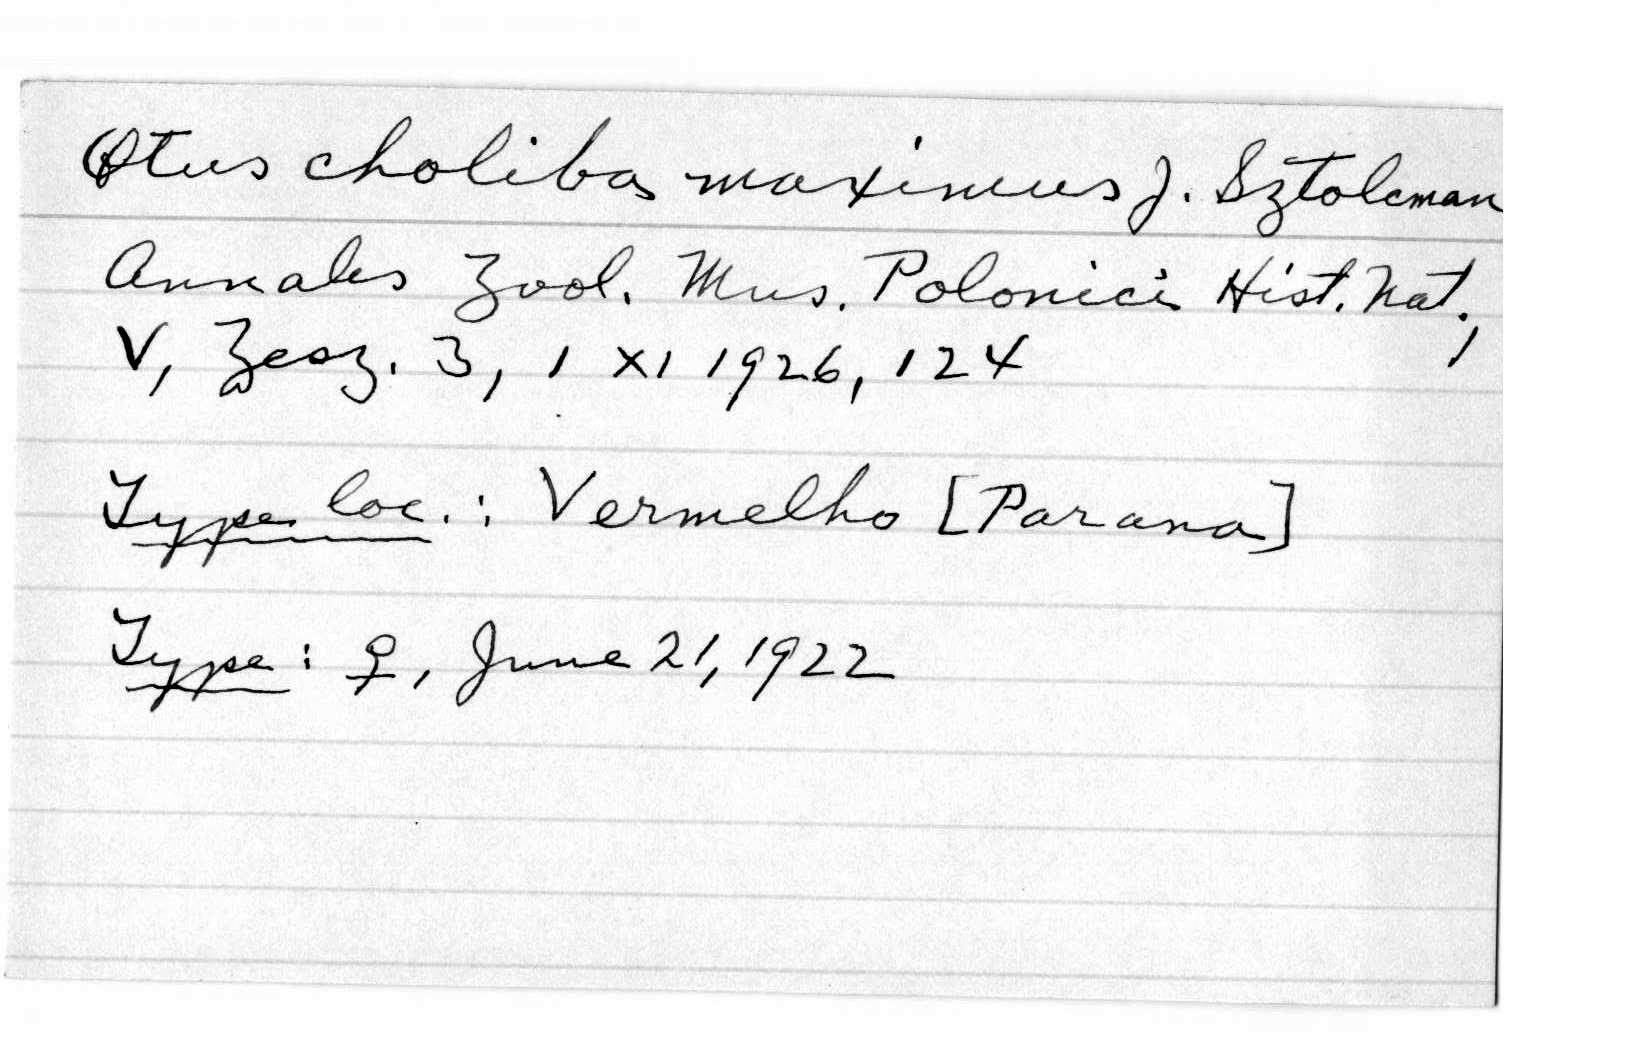 Otus choliba maximus J. Sztolcman
Annales Zool. Mus. Polonici Hist. Nat.,
V, Zesz. 3, 1 XI 1926, 124
Type loc.: Vermelho [Parana]
Type: ♀, June 21, 1922